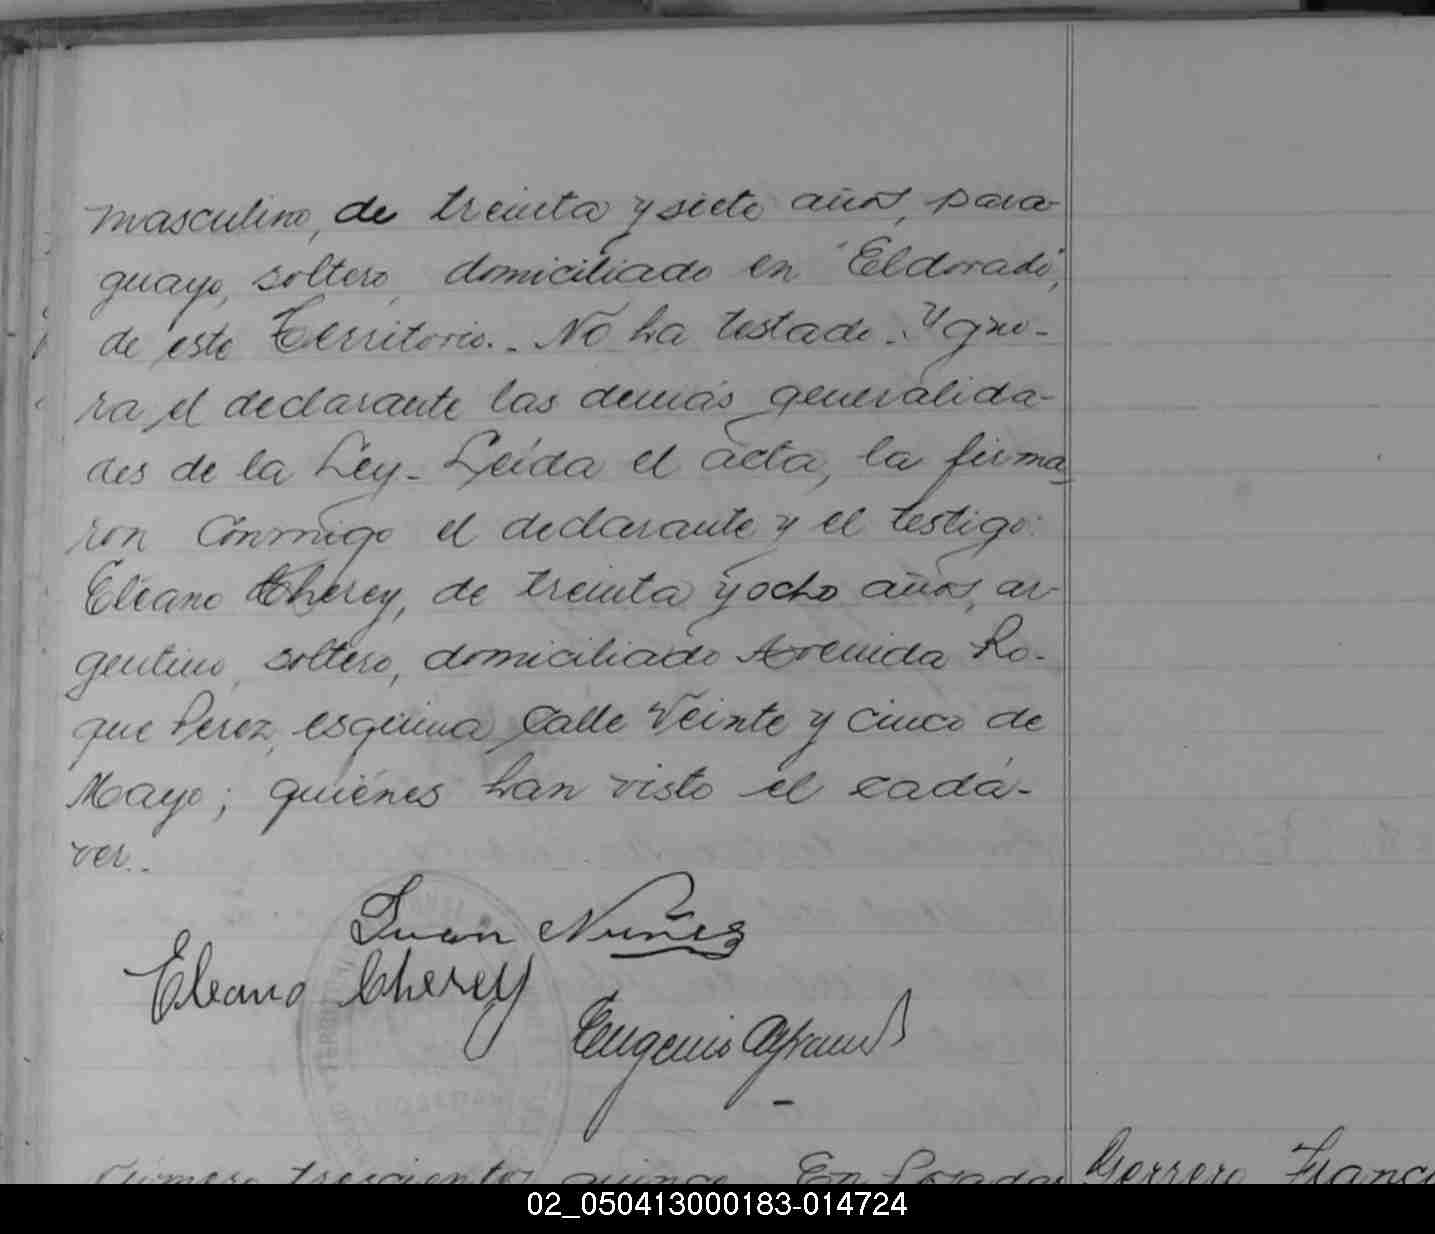 masculino, de treinta y siete años, para-
guayo, soltero, domiciliado en "Eldorado",
de este Territorio.- No ha testado.- Ygno-
ra el declarante las demás generalida-
des de la Ley.- Leída el acta, la firma-
ron conmigo el declarante y el testigo:
Eleano Cherey, de treinta y ocho años, ar-
gentino, soltero, domiciliado Avenida Ro-
que Perez, esquina Calle Veinte y cinco de
Mayo; quiénes han visto el cadá-
ver.-
Juan Nuñez
Eleano Cherey
Eugenio
Número trescientos quince En Posadas
Gerrero Franc
02_050413000183-014724